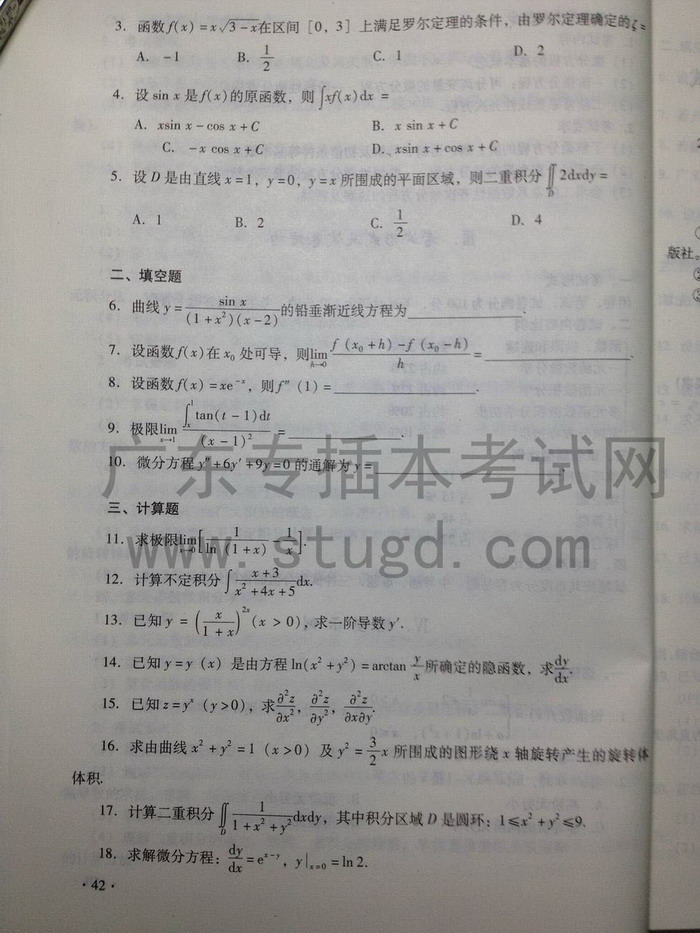 3. 函数f(x)=x√(3-x)在区间 [0, 3] 上满足罗尔定理的条件, 由罗尔定理确定的ξ=
A. -1 B. 1/2 C. 1 D. 2
4. 设 sin x 是 f(x) 的原函数, 则∫xf(x)dx =
A. xsin x - cos x + C B. x sin x + C
C. -x cos x + C D. xsin x + cos x + C
5. 设 D 是由直线 x=1, y=0, y=x 所围成的平面区域, 则二重积分∬_D 2dxdy=
A. 1 B. 2 C. 1/2 D. 4
二、填空题
6. 曲线 y = sin x/((1+x²)(x-2)) 的铅垂渐近线方程为____________.
7. 设函数 f(x) 在 x₀ 处可导, 则lim_{h→0} (f(x₀+h)-f(x₀-h))/h = ____________.
8. 设函数 f(x)=xe^{-x}, 则 f″(1)=____________.
9. 极限lim_{x→1} (∫_x^1 tan(t-1)dt)/(x-1)² = ____________.
10. 微分方程 y″+6y′+9y=0 的通解为 y=____________.
广东专插本考试网
三、计算题
11. 求极限lim_{x→0}[1/ln(1+x) - 1/x].
www.stugd.com
12. 计算不定积分∫(x+3)/(x²+4x+5)dx.
13. 已知 y = (x/(1+x))^{2x} (x>0), 求一阶导数 y′.
14. 已知 y=y(x) 是由方程 ln(x²+y²)=arctan y/x 所确定的隐函数, 求dy/dx.
15. 已知 z=y^x (y>0), 求∂²z/∂x², ∂²z/∂y², ∂²z/∂x∂y.
16. 求由曲线 x²+y²=1 (x>0) 及 y²=3/2 x 所围成的图形绕 x 轴旋转产生的旋转体
体积.
17. 计算二重积分∬_D 1/(1+x²+y²)dxdy, 其中积分区域 D 是圆环: 1≤x²+y²≤9.
18. 求解微分方程: dy/dx=e^{x-y}, y|_{x=0}=ln2.
·42·
版社。